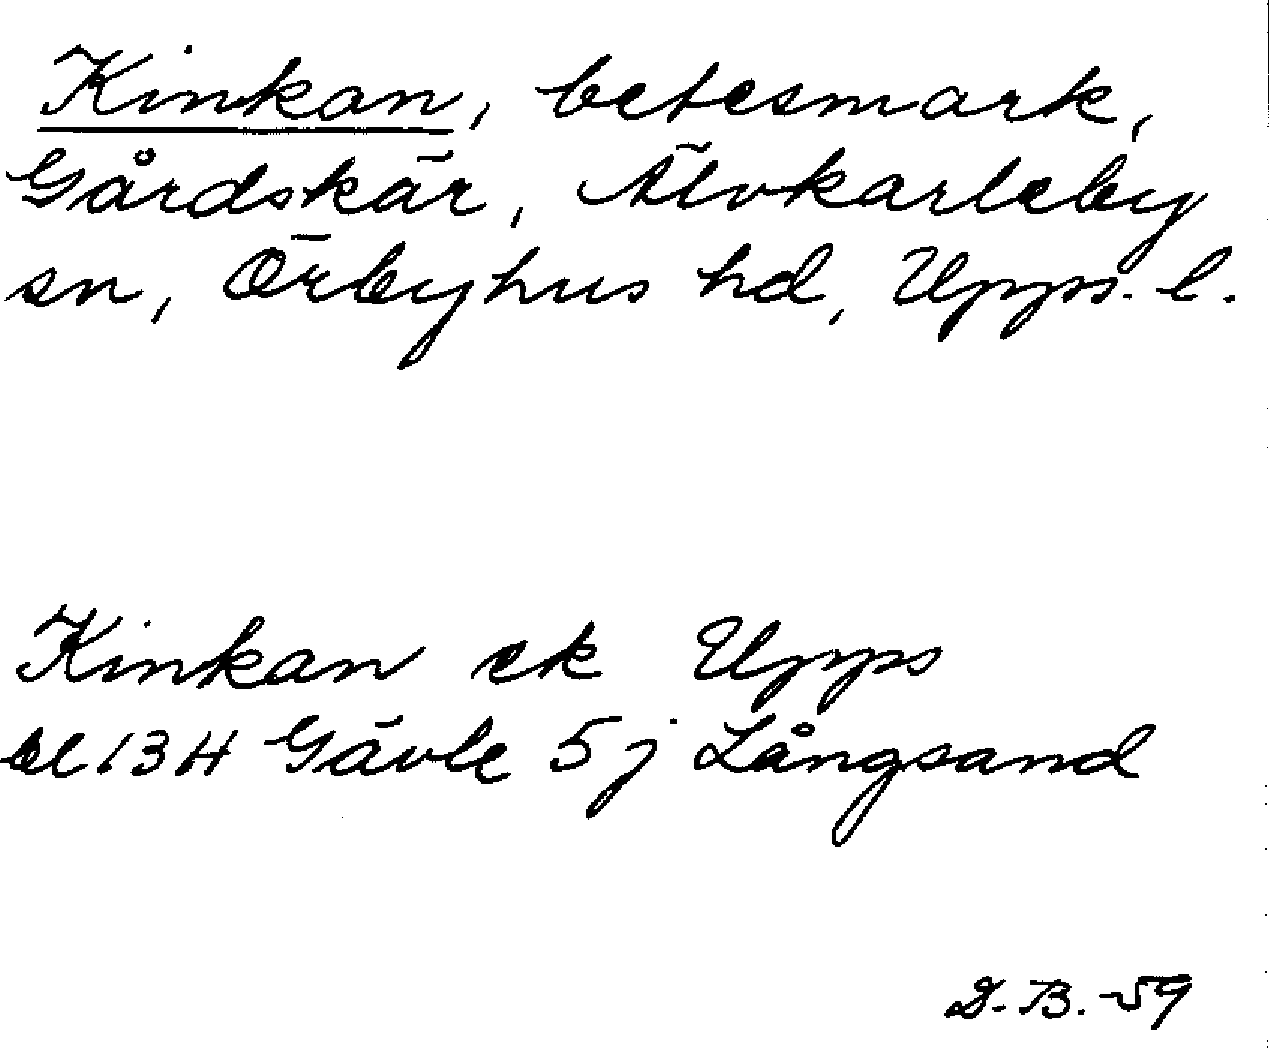 Kinkan, betesmark,
Gårdskär, Älvkarleby
sn, Örbyhus hd, Upps. l.
Kinkan ek Upps
bl 13H Gävle 5 j Långsand
D.B. -59